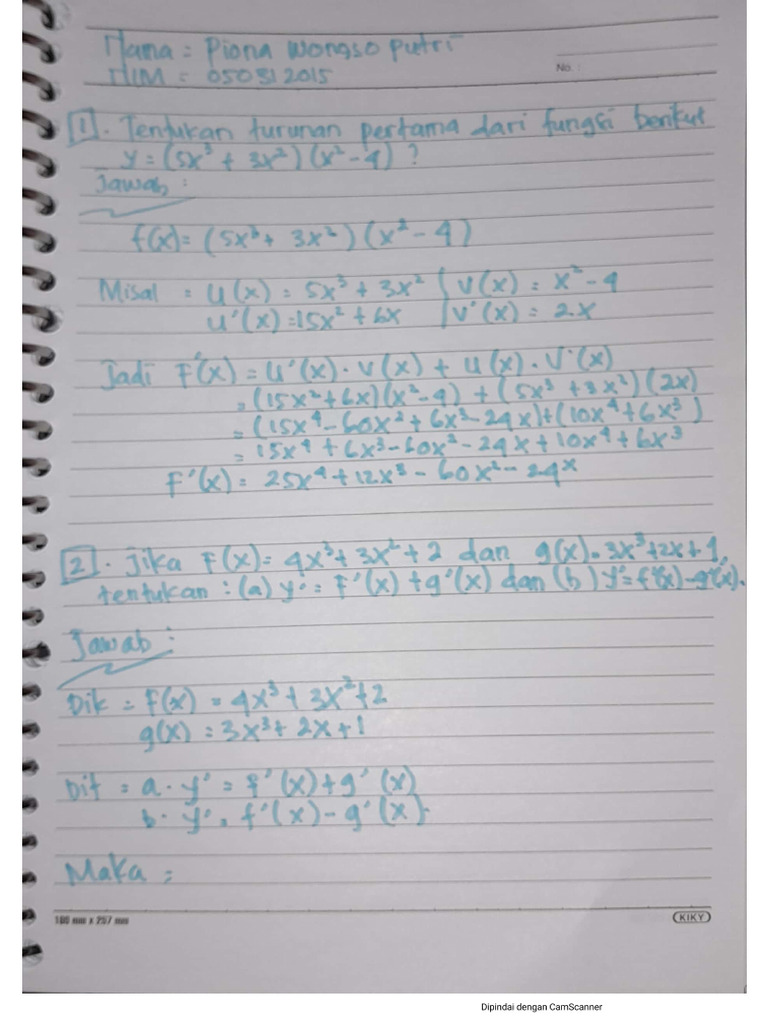 Nama = Piona Wongso Putri
No. :
NIM = 050312015
1. Tentukan turunan pertama dari fungsi berikut
y = (5x³ + 3x²)(x² - 4) ?
Jawab :
f(x) = (5x³ + 3x²)(x² - 4)
Misal = u(x) = 5x³ + 3x² } v(x) = x² - 4
u'(x) = 15x² + 6x } v'(x) = 2x
Jadi F'(x) = u'(x) · v(x) + u(x) · v'(x)
= (15x² + 6x)(x² - 4) + (5x³ + 3x²)(2x)
= (15x⁴ - 60x² + 6x³ - 24x) + (10x⁴ + 6x³)
= 15x⁴ + 6x³ - 60x² - 24x + 10x⁴ + 6x³
F'(x) = 25x⁴ + 12x³ - 60x² - 24x
2. Jika F(x) = 4x³ + 3x² + 2 dan g(x) = 3x³ + 2x + 1,
tentukan : (a) y' = F'(x) + g'(x) dan (b) y' = f'(x) - g'(x).
Jawab :
Dik = f(x) = 4x³ + 3x² + 2
g(x) = 3x³ + 2x + 1
Dit = a. y' = f'(x) + g'(x)
b. y' = f'(x) - g'(x).
Maka :
180 mm x 257 mm
KIKY
Dipindai dengan CamScanner